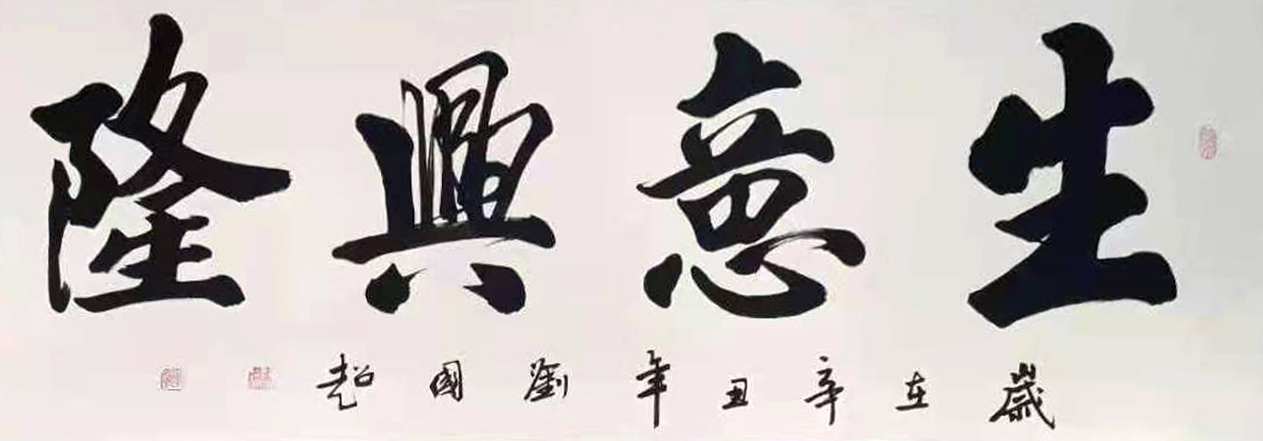 生意興隆
歲在辛丑年劉國超